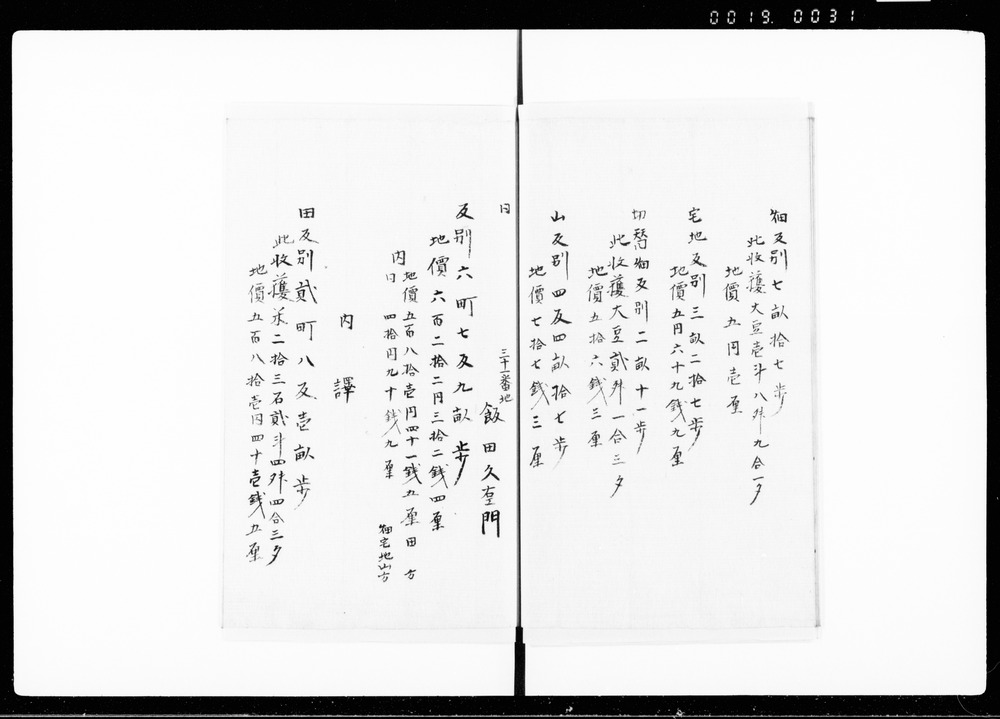 0019. 0031
畑反別七畝拾七歩
此收穫大豆壱斗八舛九合一夕
地價五円壱厘
宅地反別三畝二拾七歩
地價五円六十九銭九厘
切替畑反別二畝十一歩
此收穫大豆貳舛一合三夕
地價五拾六銭三厘
山反別四反四畝拾七歩
地價七拾七銭三厘
三十一番地
飯田久左門
反別六町七反九畝歩
地價六百二拾二円三拾二銭四厘
内
地價五百八拾壱円四十一銭五厘田方
四拾円九十銭九厘
畑宅地山方
内譯
田反別貳町八反壱畝歩
此收穫米二拾三石貳斗四舛四合三夕
地價五百八拾壱円四十壱銭五厘